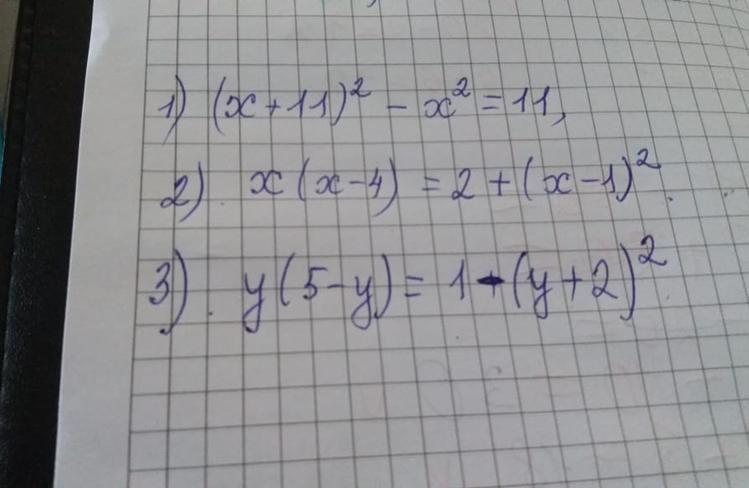 1) (x+11)² - x² = 11,
2) x(x-4) = 2+(x-1)².
3). y(5-y) = 1-(y+2)²